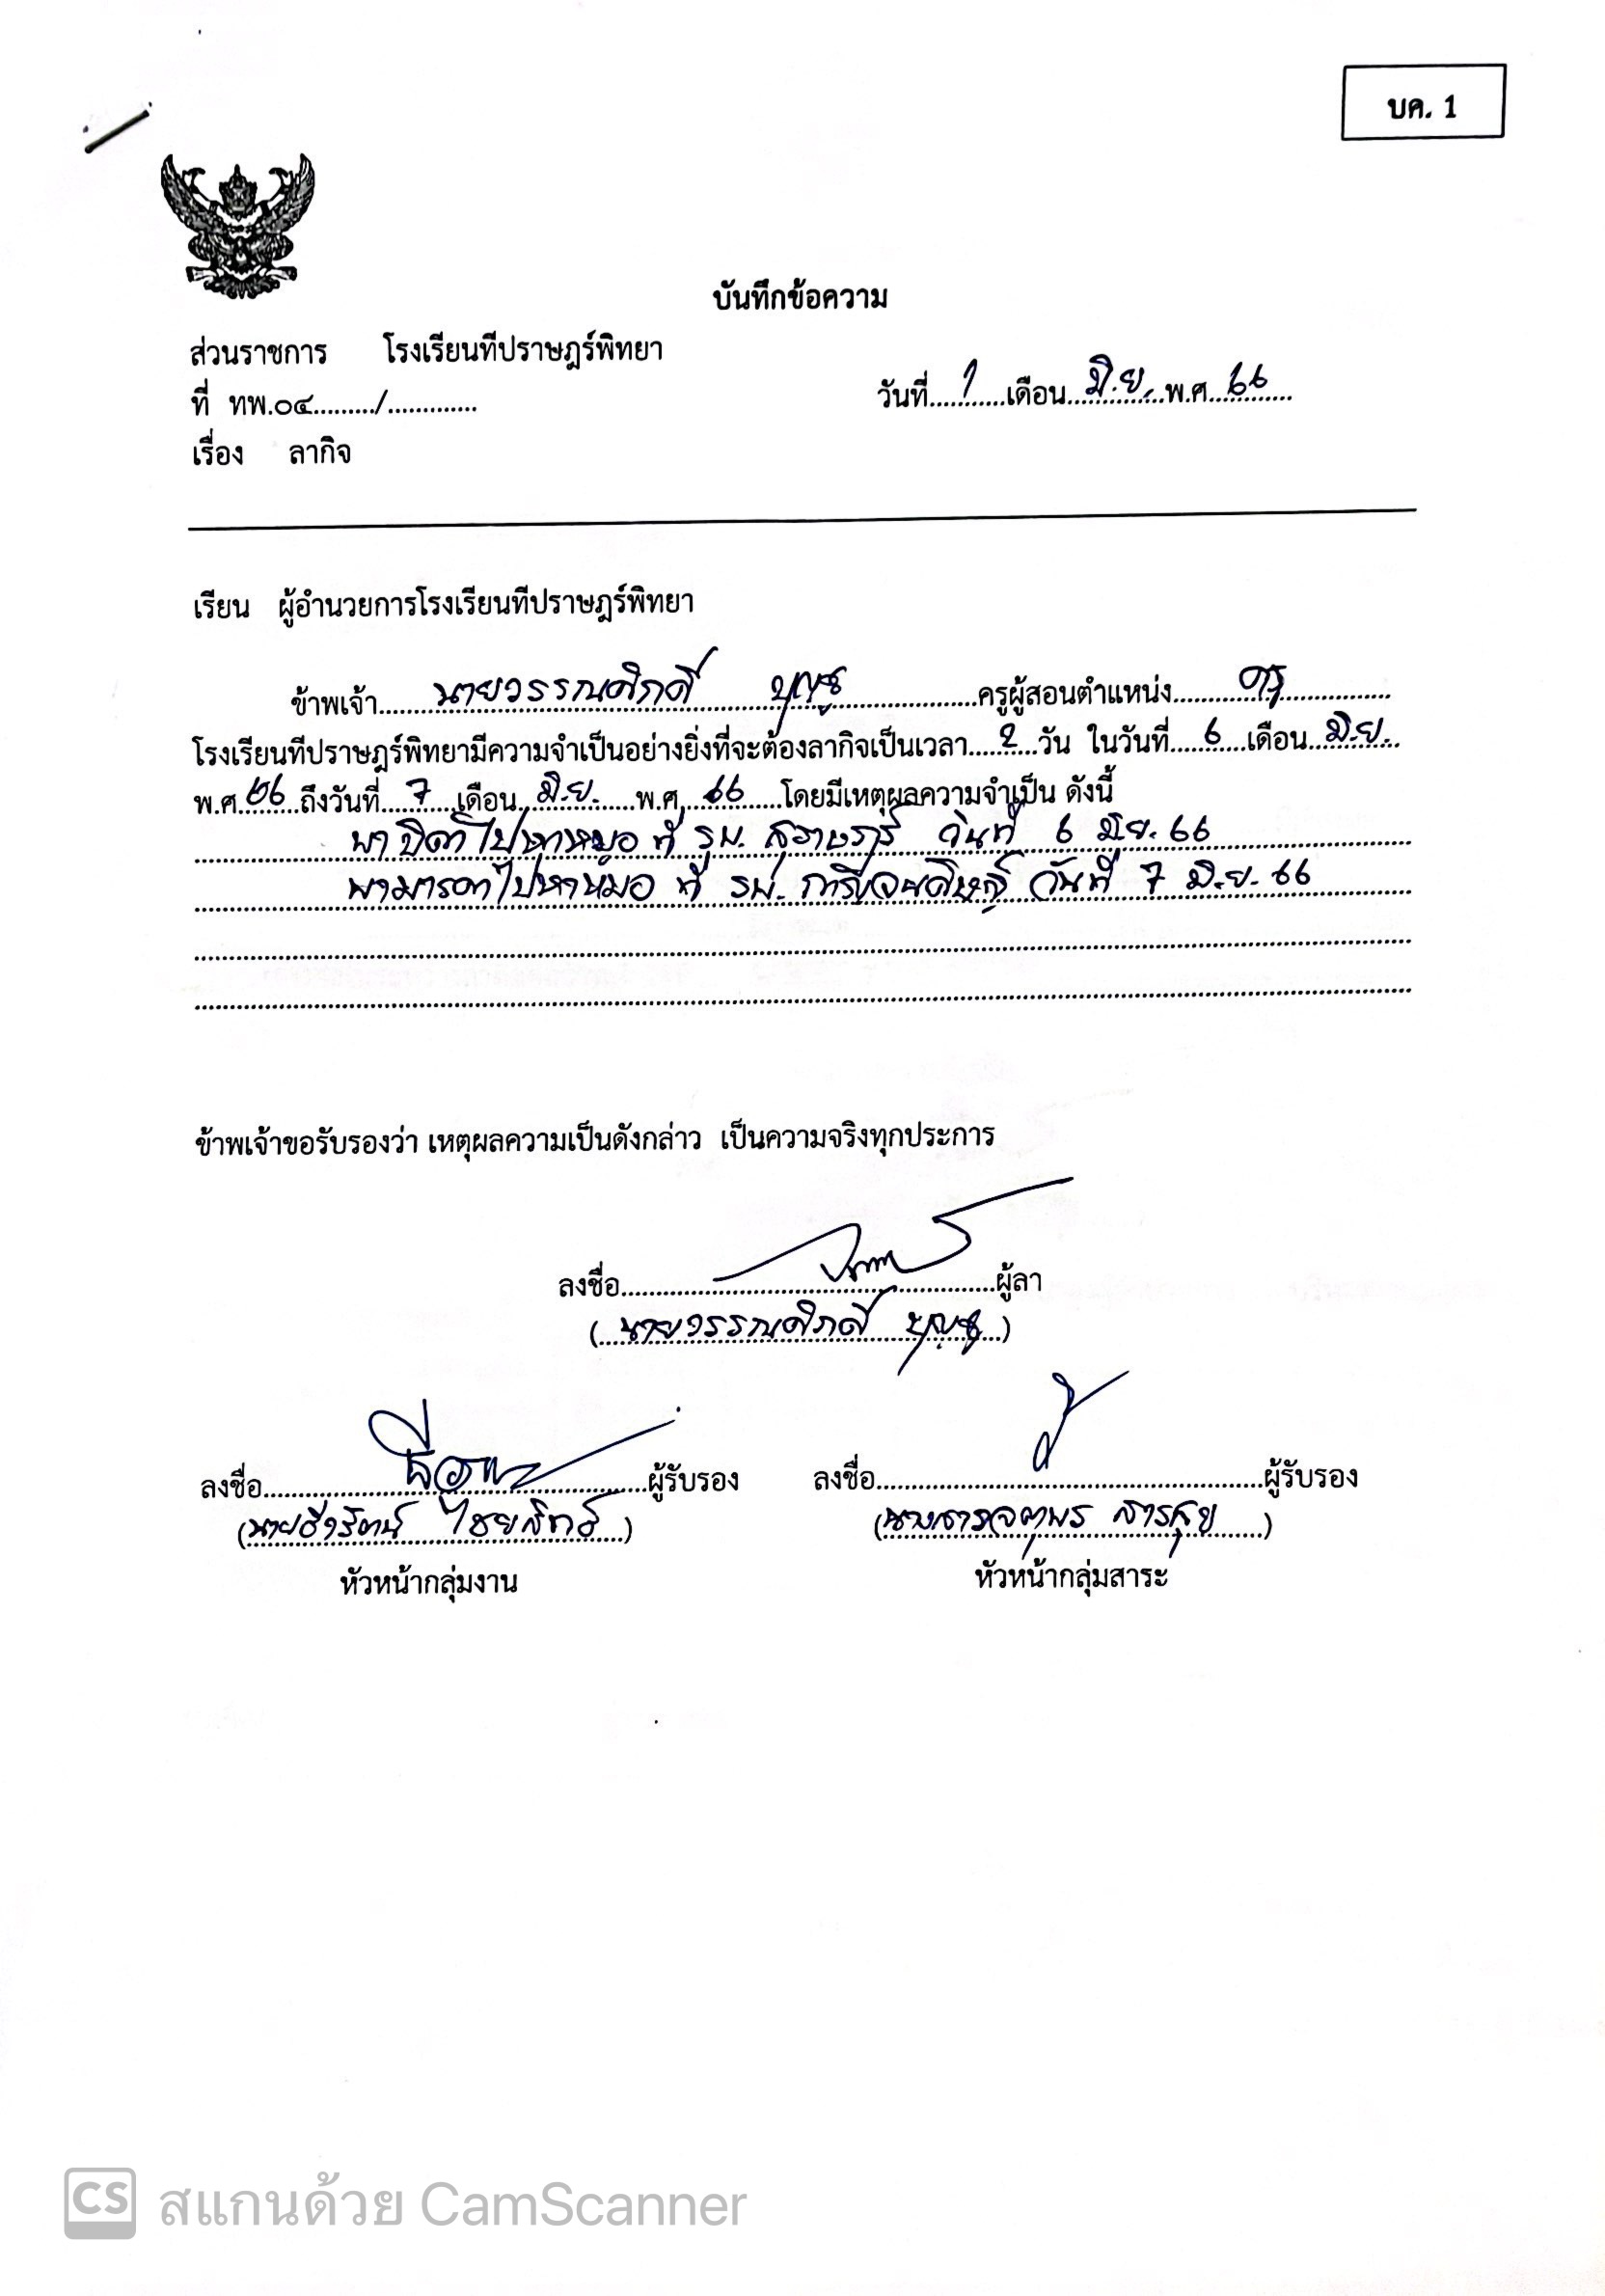 บค. 1
บันทึกข้อความ
ส่วนราชการ โรงเรียนทีปราษฎร์พิทยา
ที่ ทพ.๐๔........./............. วันที่ 1 เดือน มิ.ย. พ.ศ. 66
เรื่อง ลากิจ
เรียน ผู้อำนวยการโรงเรียนทีปราษฎร์พิทยา
ข้าพเจ้า นายวรรณศักดิ์ บุญชู ครูผู้สอนตำแหน่ง ครู
โรงเรียนทีปราษฎร์พิทยามีความจำเป็นอย่างยิ่งที่จะต้องลากิจเป็นเวลา 2 วัน ในวันที่ 6 เดือน มิ.ย.
พ.ศ. 66 ถึงวันที่ 7 เดือน มิ.ย. พ.ศ. 66 โดยมีเหตุผลความจำเป็น ดังนี้
พาบิดาไปหาหมอ ที่ รพ. วันที่ 6 มิ.ย. 66
พามารดาไปหาหมอ ที่ รพ. วันที่ 7 มิ.ย. 66
ข้าพเจ้าขอรับรองว่า เหตุผลความเป็นดังกล่าว เป็นความจริงทุกประการ
ลงชื่อ ผู้ลา
(นายวรรณศักดิ์ บุญชู)
ลงชื่อ ผู้รับรอง ลงชื่อ ผู้รับรอง
(นายธีรรัตน์ ไชยสิทธิ์) (นางสาวจตุพร สารสุข)
หัวหน้ากลุ่มงาน หัวหน้ากลุ่มสาระ
CS สแกนด้วย CamScanner